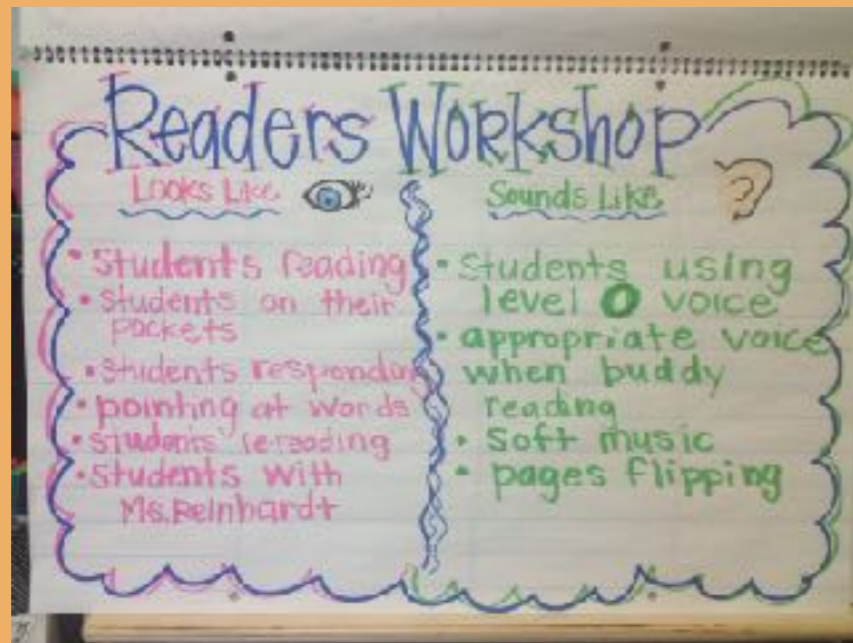 Readers Workshop
Looks Like
• Students reading
• Students on their
pockets
• Students responding
• pointing at words
• students rereading
• Students with
Ms. Reinhardt
Sounds Like
• Students using
level 0 voice
• appropriate voice
when buddy
reading
• Soft music
• pages flipping